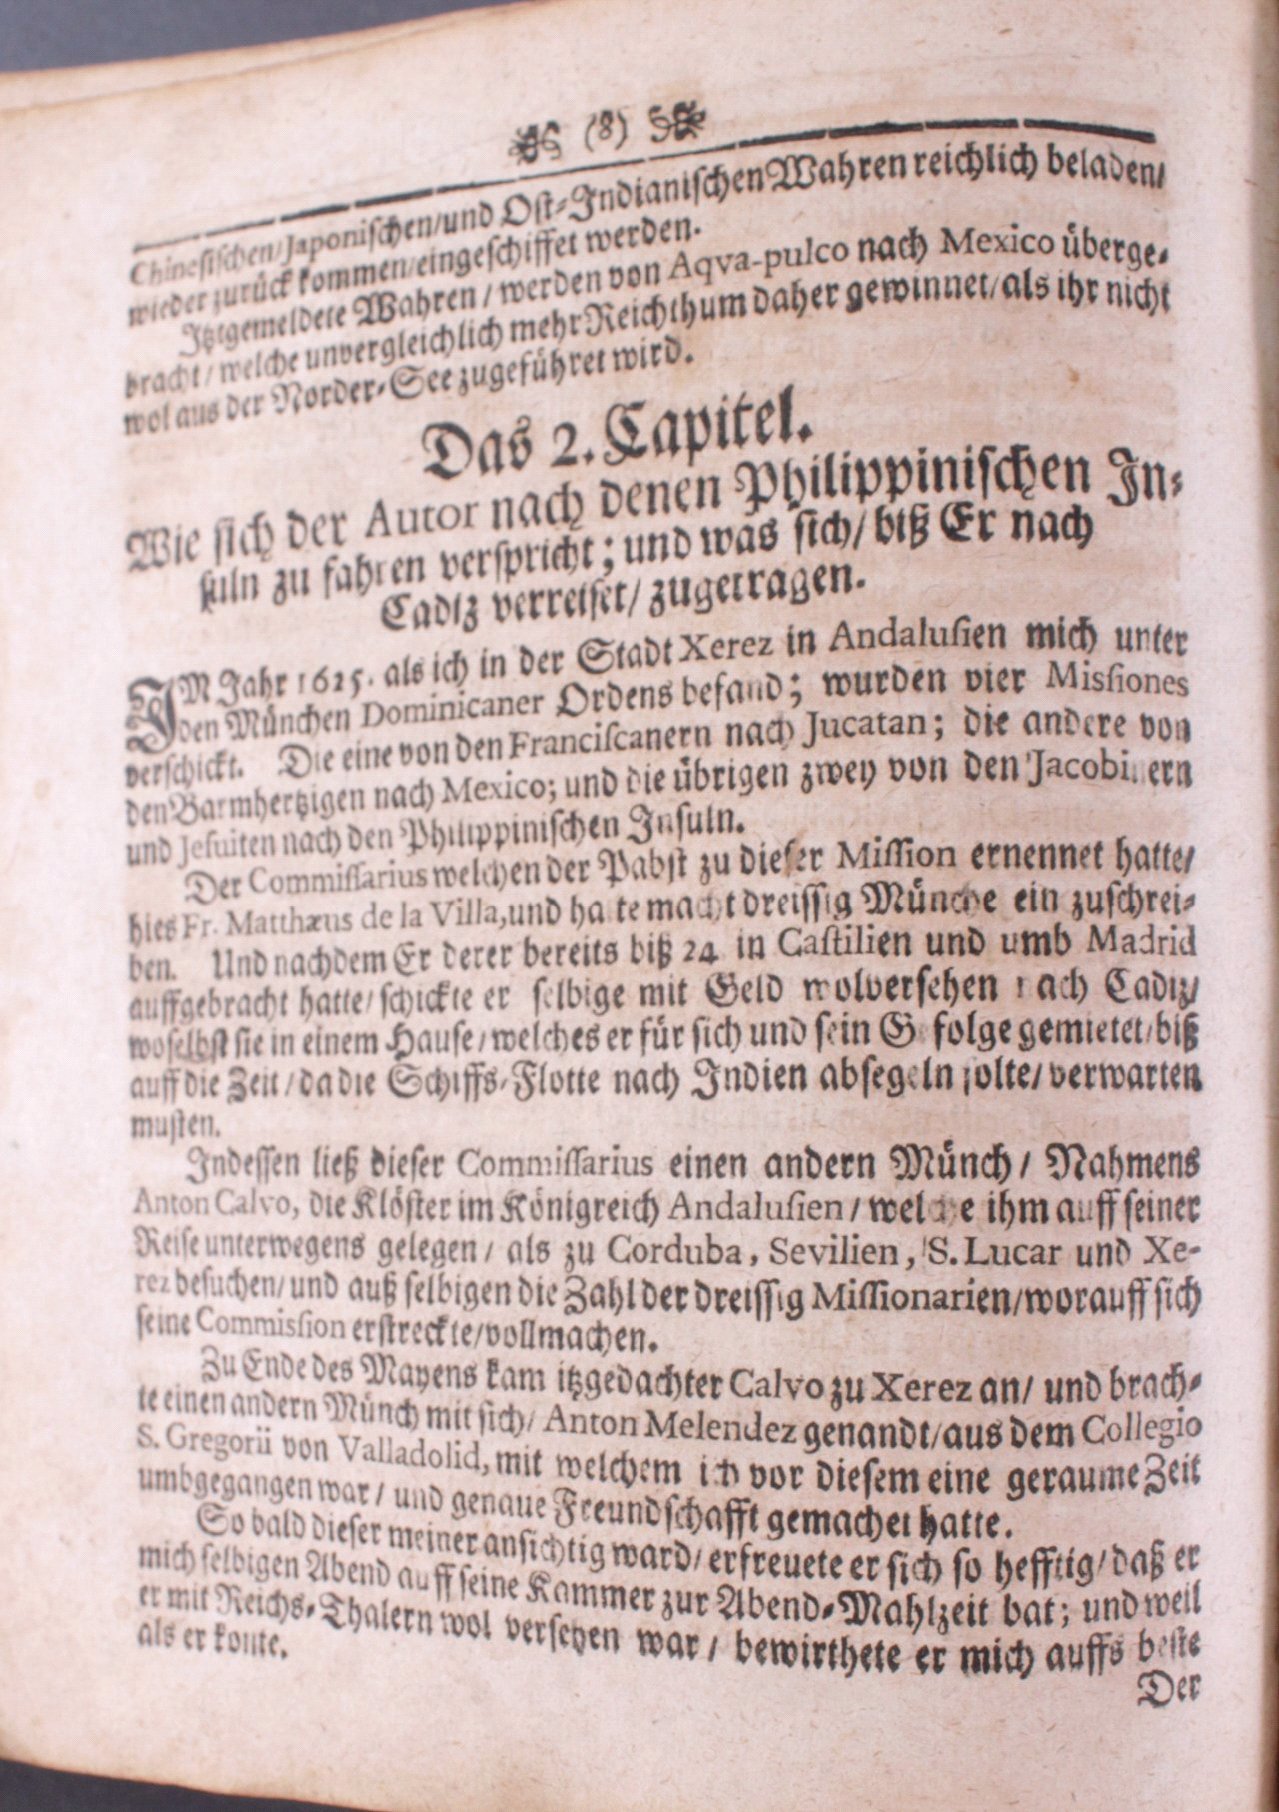 (8)
Chinesischen/Japonischen/und Ost-Indianischen Wahren reichlich beladen/
wieder zurück kommen/eingeschiffet werden.
Itztgemeldete Wahren/werden von Aqva-pulco nach Mexico überge-
bracht/welche unvergleichlich mehr Reichthum daher gewinnet/als ihr nicht
wol aus der Norder-See zugeführet wird.
Das 2. Capitel.
Wie sich der Autor nach denen Philippinischen In-
suln zu fahren verspricht; und was sich/biß Er nach
Cadiz verreiset/zugetragen.
IM Jahr 1625. als ich in der Stadt Xerez in Andalusien mich unter
den München Dominicaner Ordens befand; wurden vier Missiones
verschickt. Die eine von den Franciscanern nach Jucatan; die andere von
den Barmhertzigen nach Mexico; und die übrigen zwey von den Jacobinern
und Jesuiten nach den Philippinischen Insuln.
Der Commissarius welchen der Pabst zu dieser Mission ernennet hatte/
hies Fr. Matthæus de la Villa, und hatte macht dreissig Münche ein zuschrei-
ben. Und nachdem Er derer bereits biß 24 in Castilien und umb Madrid
auffgebracht hatte/schickte er selbige mit Geld wolversehen nach Cadiz/
woselbst sie in einem Hause/welches er für sich und sein Gefolge gemietet/biß
auff die Zeit/da die Schiffs-Flotte nach Indien absegeln solte/verwarten
musten.
Indessen ließ dieser Commissarius einen andern Münch/Nahmens
Anton Calvo, die Klöster im Königreich Andalusien/welche ihm auff seiner
Reise unterwegens gelegen/als zu Corduba, Sevilien, S. Lucar und Xe-
rez besuchen/und auß selbigen die Zahl der dreissig Missionarien/worauff sich
seine Commission erstreckte/vollmachen.
Zu Ende des Mayens kam itzgedachter Calvo zu Xerez an/und brach-
te einen andern Münch mit sich/Anton Melendez genandt/aus dem Collegio
S. Gregorii von Valladolid, mit welchem ich vor diesem eine geraume Zeit
umbgegangen war/und genaue Freundschafft gemachet hatte.
So bald dieser meiner ansichtig ward/erfreuete er sich so hefftig/daß er
mich selbigen Abend auff seine Kammer zur Abend-Mahlzeit bat; und weil
er mit Reichs-Thalern wol versehen war/bewirthete er mich auffs beste
als er konte.
Der